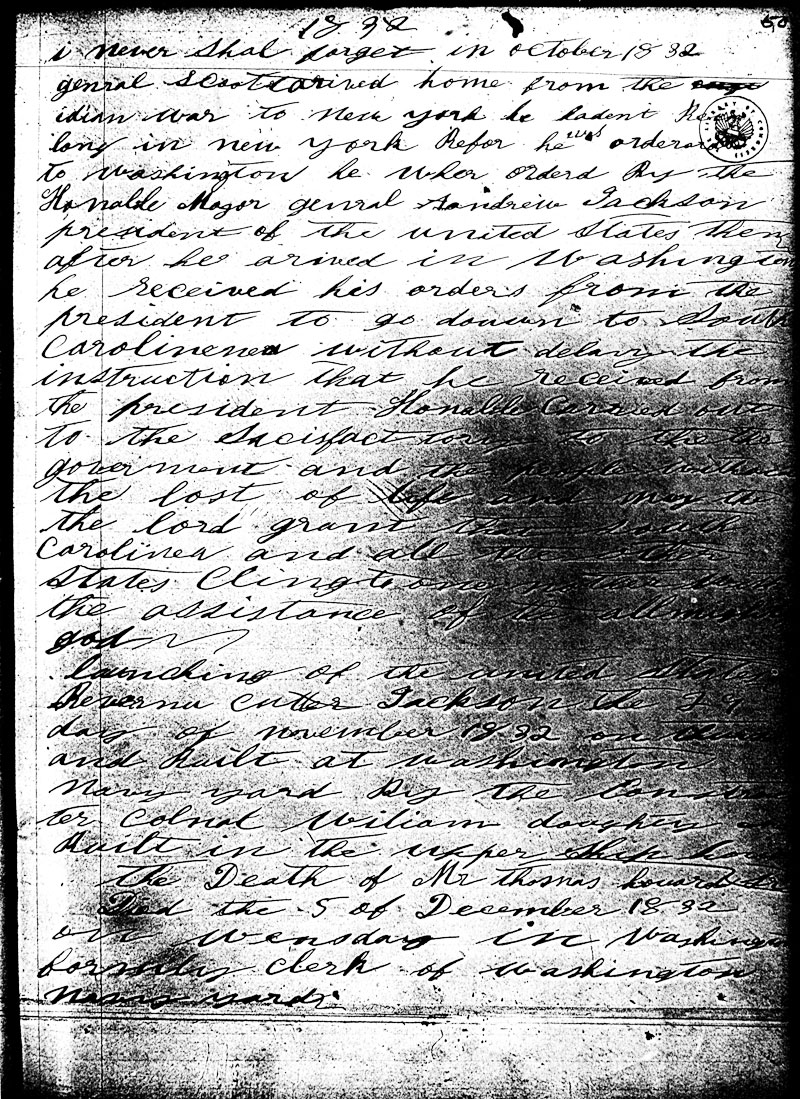 1832
i never Shal forget in october 1832
genral Scoot arived home from the
idian war to New york he hadent Be
long in new york Befor he was orderd
to washington he wher orderd By the
Honable Magor genral Andrew Jackson
president of the united States then
after he arived in Washington
he received his orders from the
president to go douwn to South
Carolinena without delay the
instruction that he received from
the president Honable Carried out
to the Sacisfact tory to the
goverment and the people without
the lost of life and may the
the lord grant that South
Carolinea and all the other
States Cling to
the assistance of the allmighty
god
launching of the united States
Revernu Cutter Jackson the
day of november 1832 on
and Built at washington
Navy yard By the Construc
ter Colnal Wiliam doughty
Built in the upper Ship hous
the Death of Mr thomas howard Sr
Died the 5 of December 1832
on wensday in Washington
formily Clerk of washington
Navy yard